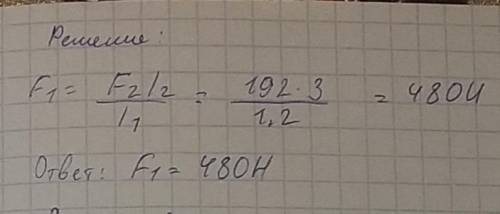 Решение:
F₁ = F₂l₂/l₁ = 192·3/1,2 = 480Н
Ответ: F₁ = 480Н